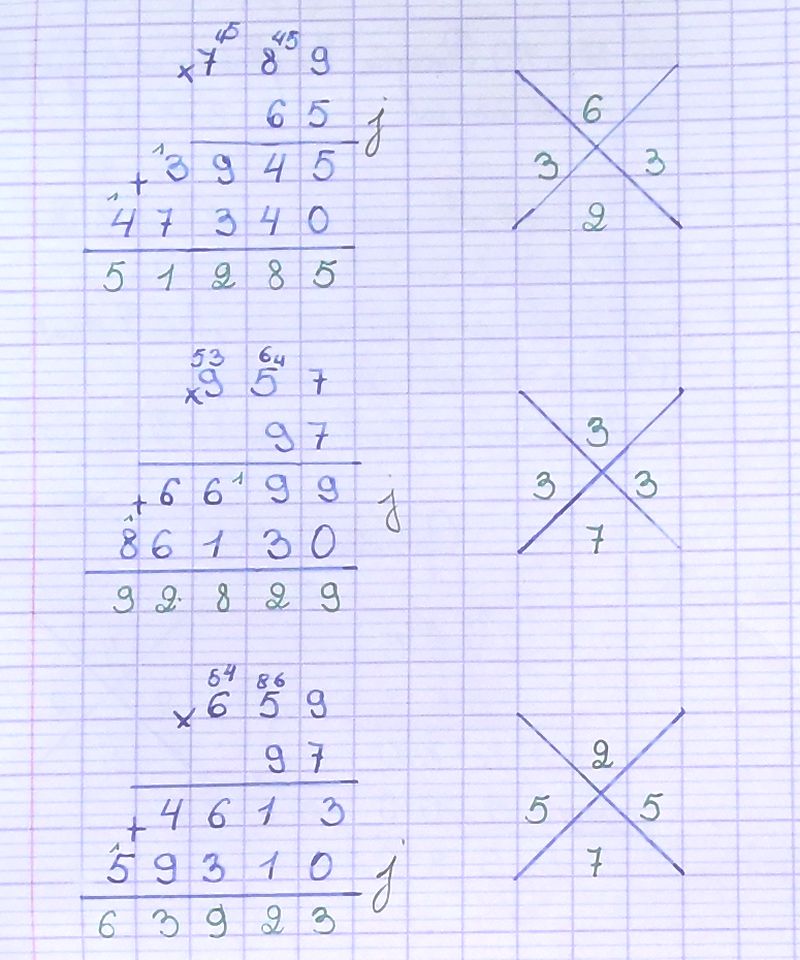 45 45
× 7 8 9
6 5 j
1
+ 3 9 4 5
1
4 7 3 4 0
5 1 2 8 5
6
3 3
2
53 64
× 9 5 7
9 7
+ 6 6 1 9 9 j
1
8 6 1 3 0
9 2 8 2 9
3
3 3
7
54 86
× 6 5 9
9 7
+ 4 6 1 3
1
5 9 3 1 0 j
6 3 9 2 3
2
5 5
7